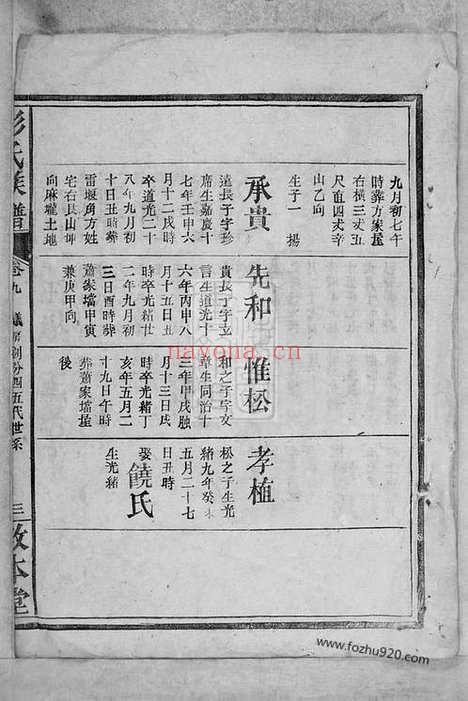 九月初七午
時葬方家屋
右橫三丈五
尺直四丈辛
山乙向
生子一 揚
承貴
遠長子字珍
席生嘉慶十
七年壬申六
月十二戌時
卒道光二十
八年九月初
十日丑時葬
雷堰角方姓
宅右艮山坤
向麻壠土地
先和
貴長子字立
言生道光十
六年丙申八
月十五日丑
時卒光緒廿
二年九月初
三日酉時葬
蕭家壋甲寅
兼庚甲向
惟松
和之子字文
華生同治十
三年甲戌臘
月十三日戌
時卒光緒丁
亥年五月二
十九日午時
葬蕭家壋屋
後
孝植
松之子生光
緒九年癸未
五月二十七
日丑時
娶饒氏
生光緒
彭氏族譜
卷九
房創分四五代世系
三
敦本堂
nayona.cn
www.fozhu920.com